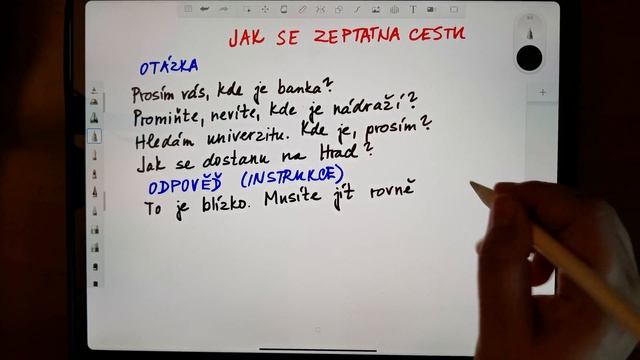 JAK SE ZEPTAT NA CESTU
OTÁZKA
Prosím vás, kde je banka?
Promiňte, nevíte, kde je nádraží?
Hledám univerzitu. Kde je, prosím?
Jak se dostanu na Hrad?
ODPOVĚĎ (INSTRUKCE)
To je blízko. Musíte jít rovně